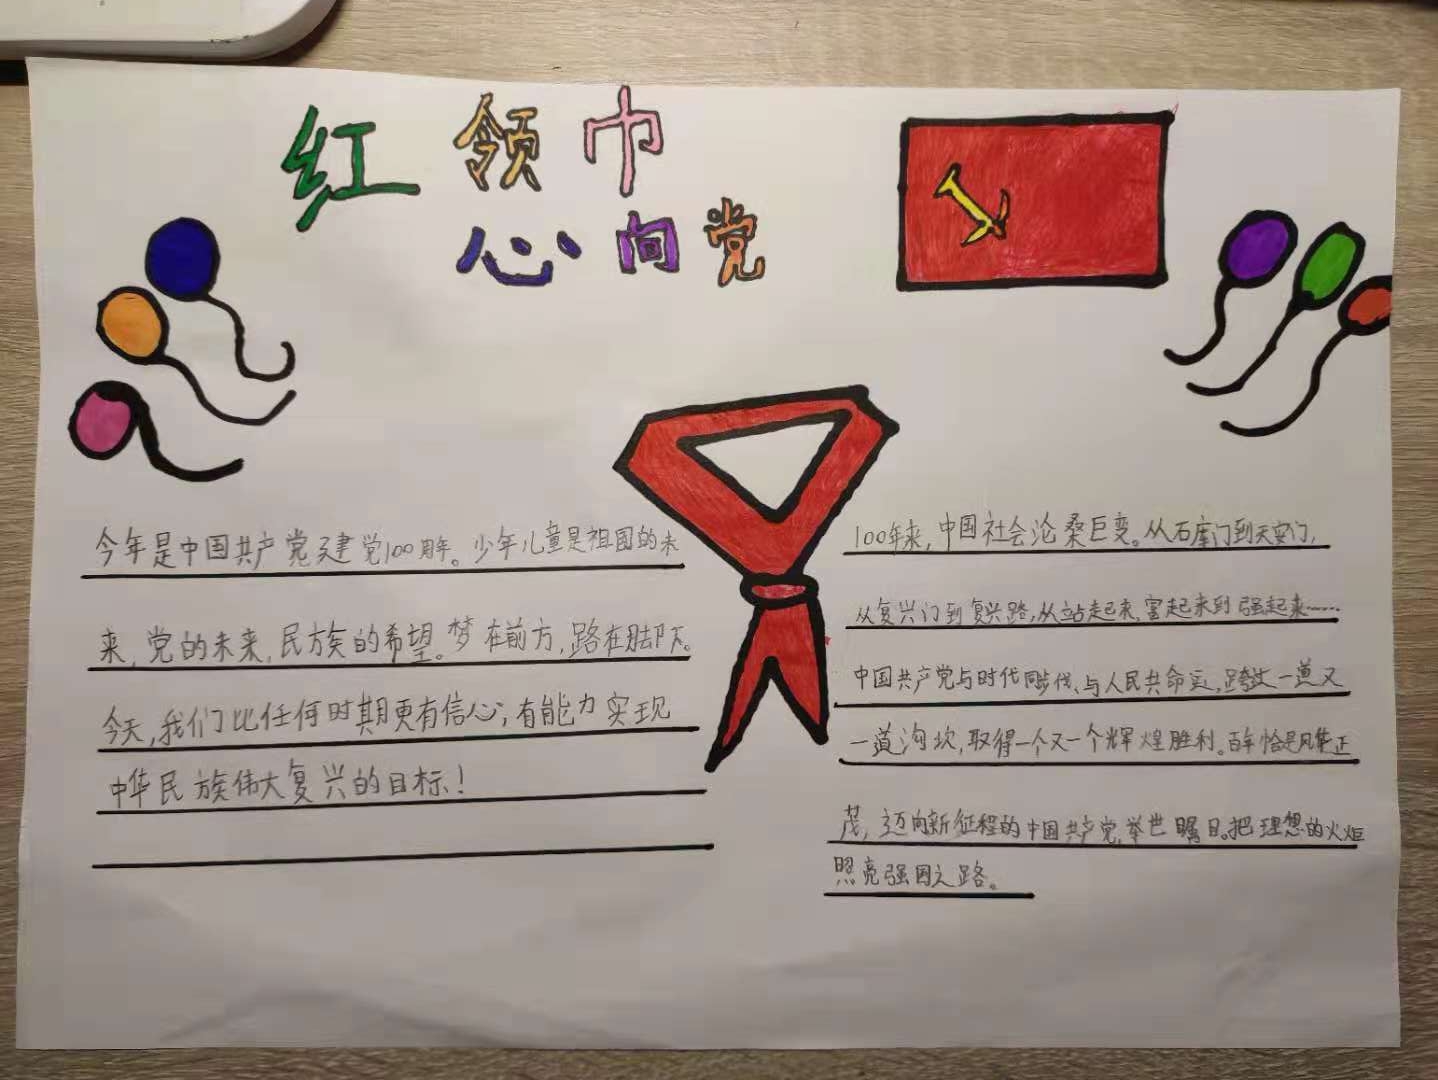 红领巾
心向党
今年是中国共产党建党100周年。少年儿童是祖国的未
来,党的未来,民族的希望。梦在前方,路在脚下。
今天,我们比任何时期更有信心,有能力实现
中华民族伟大复兴的目标!
100年来,中国社会沧桑巨变。从石库门到天安门,
从复兴门到复兴路,从站起来,富起来到强起来……
中国共产党与时代同步伐、与人民共命运,跨过一道又
一道沟坎,取得一个又一个辉煌胜利。百年恰是风华正
茂,迈向新征程的中国共产党,举世瞩目。把理想的火炬
照亮强国之路。